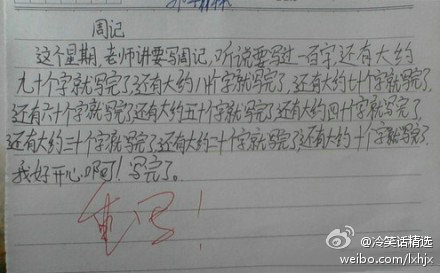 周记
这个星期,老师讲要写周记,听说要写过一百字,还有大约
九十个字就写完了,还有大约八十个字就写完了,还有大约七十个字就写完了,
还有六十个字就写完了,还有大约五十个字就写完了,还有大约四十个字就写完了,
还有大约三十个字就写完了,还有大约二十个字就写完了,还有大约十个字就写完了.
我好开心啊!写完了。
重写!
@冷笑话精选
weibo.com/lxhjx